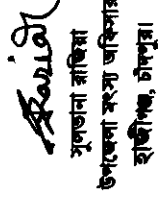 Razia
সুলতানা রাজিয়া
উপজেলা মৎস্য অফিসার
হাজীগঞ্জ, চাঁদপুর।